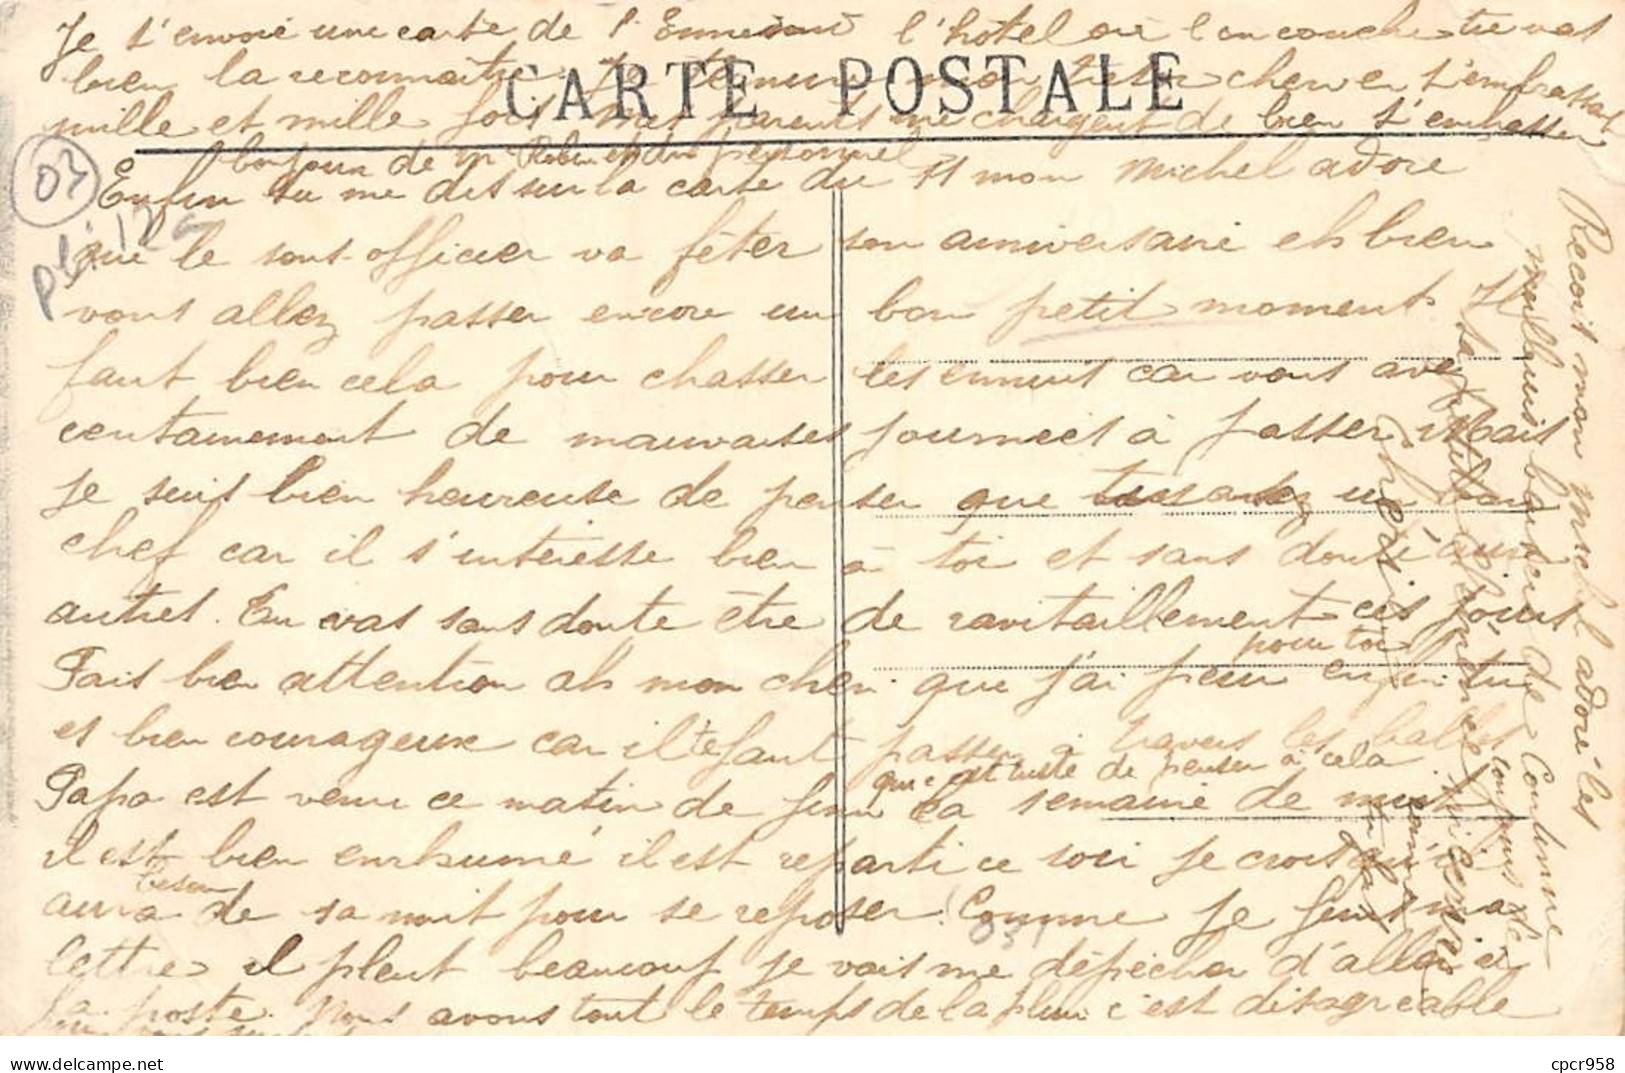 Je t'envoie une carte de l' l'hôtel où l'on couche tu vas
bien la reconnaître Je mon cher en t'embrassant
CARTE POSTALE
mille et mille fois mes parents me chargent de bien t'embrasser
bonjour de Mr Robin et du personnel
03
Enfin tu me dis sur la carte du 11 mon Michel adoré
que le sous-officier va fêter son aniversaire eh bien
vous allez passer encore un bon petit moment Il
faut bien cela pour chasser les ennuis car vous avez
certainement de mauvaises journées à passer Mais
je suis bien heureuse de penser que un bon
chef car il s'intéresse bien à toi et sans doute aux
autres. Tu vas sans doute être de ravitaillement ces jours
pour toi
Fais bien attention ah mon cheri que j'ai peur enfin tu
es bien courageux car il te faut passer à travers les balles
que c'est triste de penser à cela
Papa est venu ce matin de finir sa semaine de nuit
il est bien enrhumé il est reparti ce soir je crois qu'il
besoin
aura de sa nuit pour se reposer. Comme je finis ma
031
lettre il pleut beaucoup je vais me dépêcher d'aller à
la poste. Nous avons tout le temps de la pluie c'est disagréable
Recoit mon Michel adoré les
meilleurs baiser de Continue
toujours de
sa petite
chérie
cpcr958
www.delcampe.net